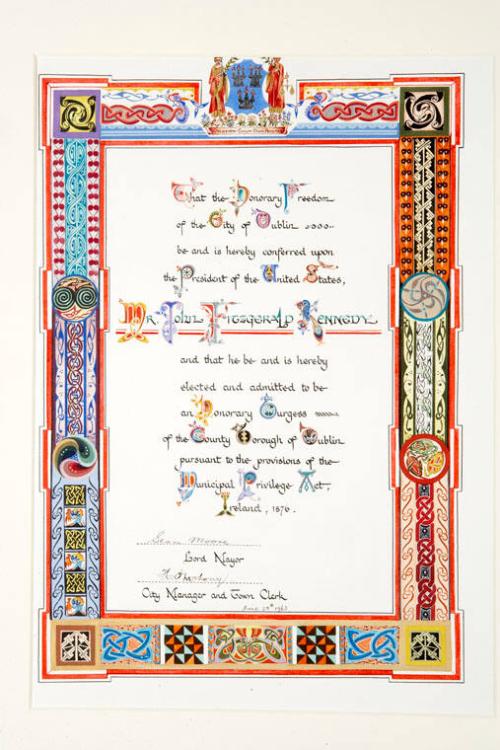 That the Honorary Freedom
of the City of Dublin
be and is hereby conferred upon
the President of the United States,
Mr. John Fitzgerald Kennedy
and that he be and is hereby
elected and admitted to be
an Honorary Burgess
of the County Borough of Dublin
pursuant to the provisions of the
Municipal Privilege Act,
Ireland, 1876.
Sean Moore
Lord Mayor
City Manager and Town Clerk